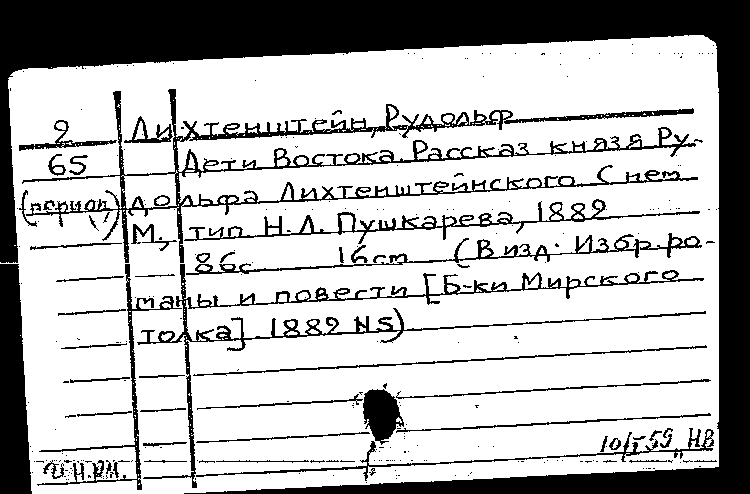 2 Лихтенштейн, Рудольф
65 Дети Востока. Рассказ князя Ру-
(период) дольфа Лихтенштейнского. С нем
М, тип Н.Л. Пушкарева, 1882
86с 16см (В изд. Избр. ро-
маны и повести [Б-ки Мирского
толка] 1882 N5)
10/I 59 НВ